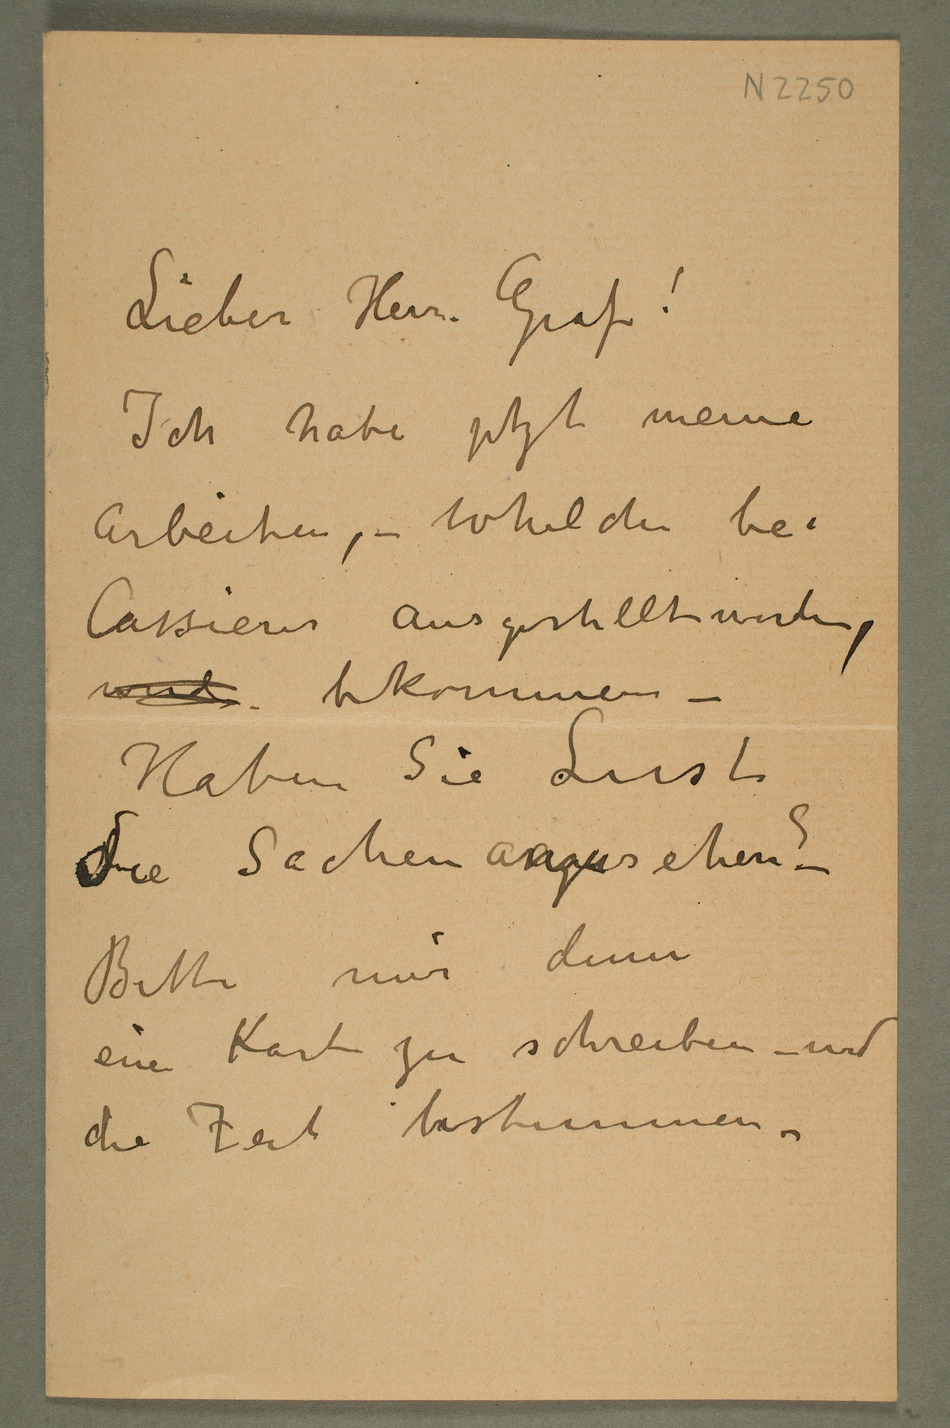 N 2250
Lieber Herr Graf!
Ich habe jetzt meine
Arbeiten, – whelche bei
Cassierer ausgestellt worden,
bekommen –
Haben Sie Lust
die Sachen anzusehen? –
Bitte mir denn
eine Karte zu schreiben – und
die Zeit bestimmen –